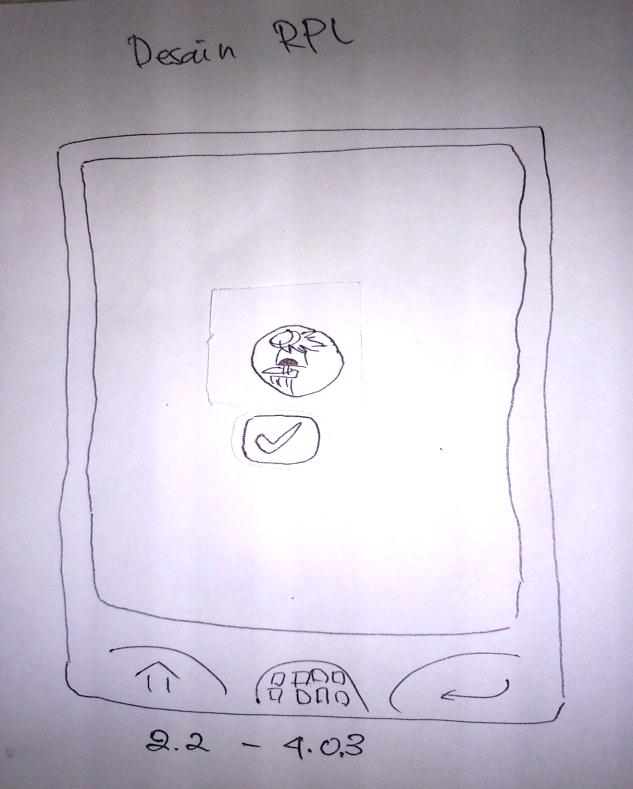 Desain RPL
2.2 - 4.0.3